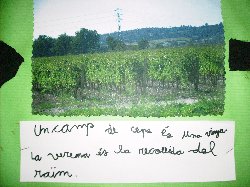 Un camp de ceps és una vinya
La verema és la recollida del
raïm.